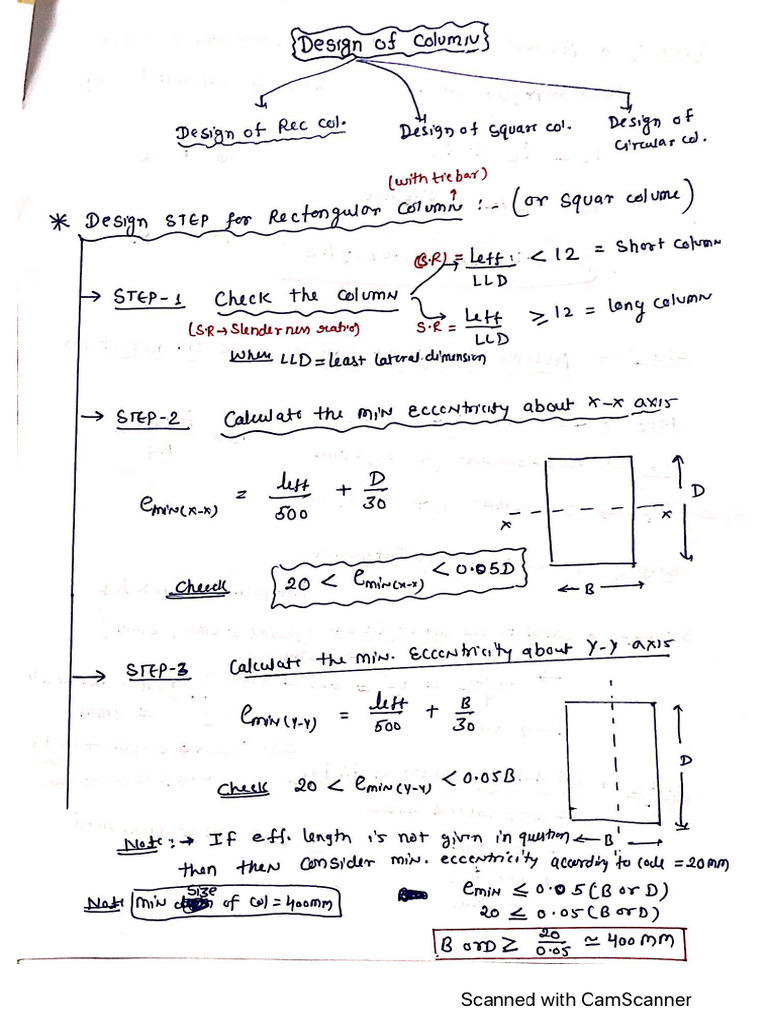 Design of Column
Design of Rec Col.
Design of Square col.
Design of
Circular col.
(with tie bar)
* Design STEP for Rectangular Column :- (or Squar colume)
(S.R) = Leff: / LLD < 12 = Short column
→ STEP-1 Check the Column
(S.R → Slenderness ratio)
S.R = Leff / LLD ≥ 12 = long column
When LLD = least lateral dimension
→ STEP-2 Calculate the min eccentricity about x-x axis
e min(x-x) = leff / 500 + D / 30
x
x
D
← B →
Cheeck 20 < e min(x-x) < 0.05D
→ STEP-3 Calculate the min. Eccentricity about Y-Y axis
e min(Y-Y) = leff / 500 + B / 30
D
Check 20 < e min(Y-Y) < 0.05B
← B →
Note: → If eff. length is not given in question
then then consider min. eccentricity according to code = 20mm
Note min size of col = 400mm
emin ≤ 0.05 (B or D)
20 ≤ 0.05 (B or D)
B or D ≥ 20 / 0.05 ≃ 400 mm
Scanned with CamScanner